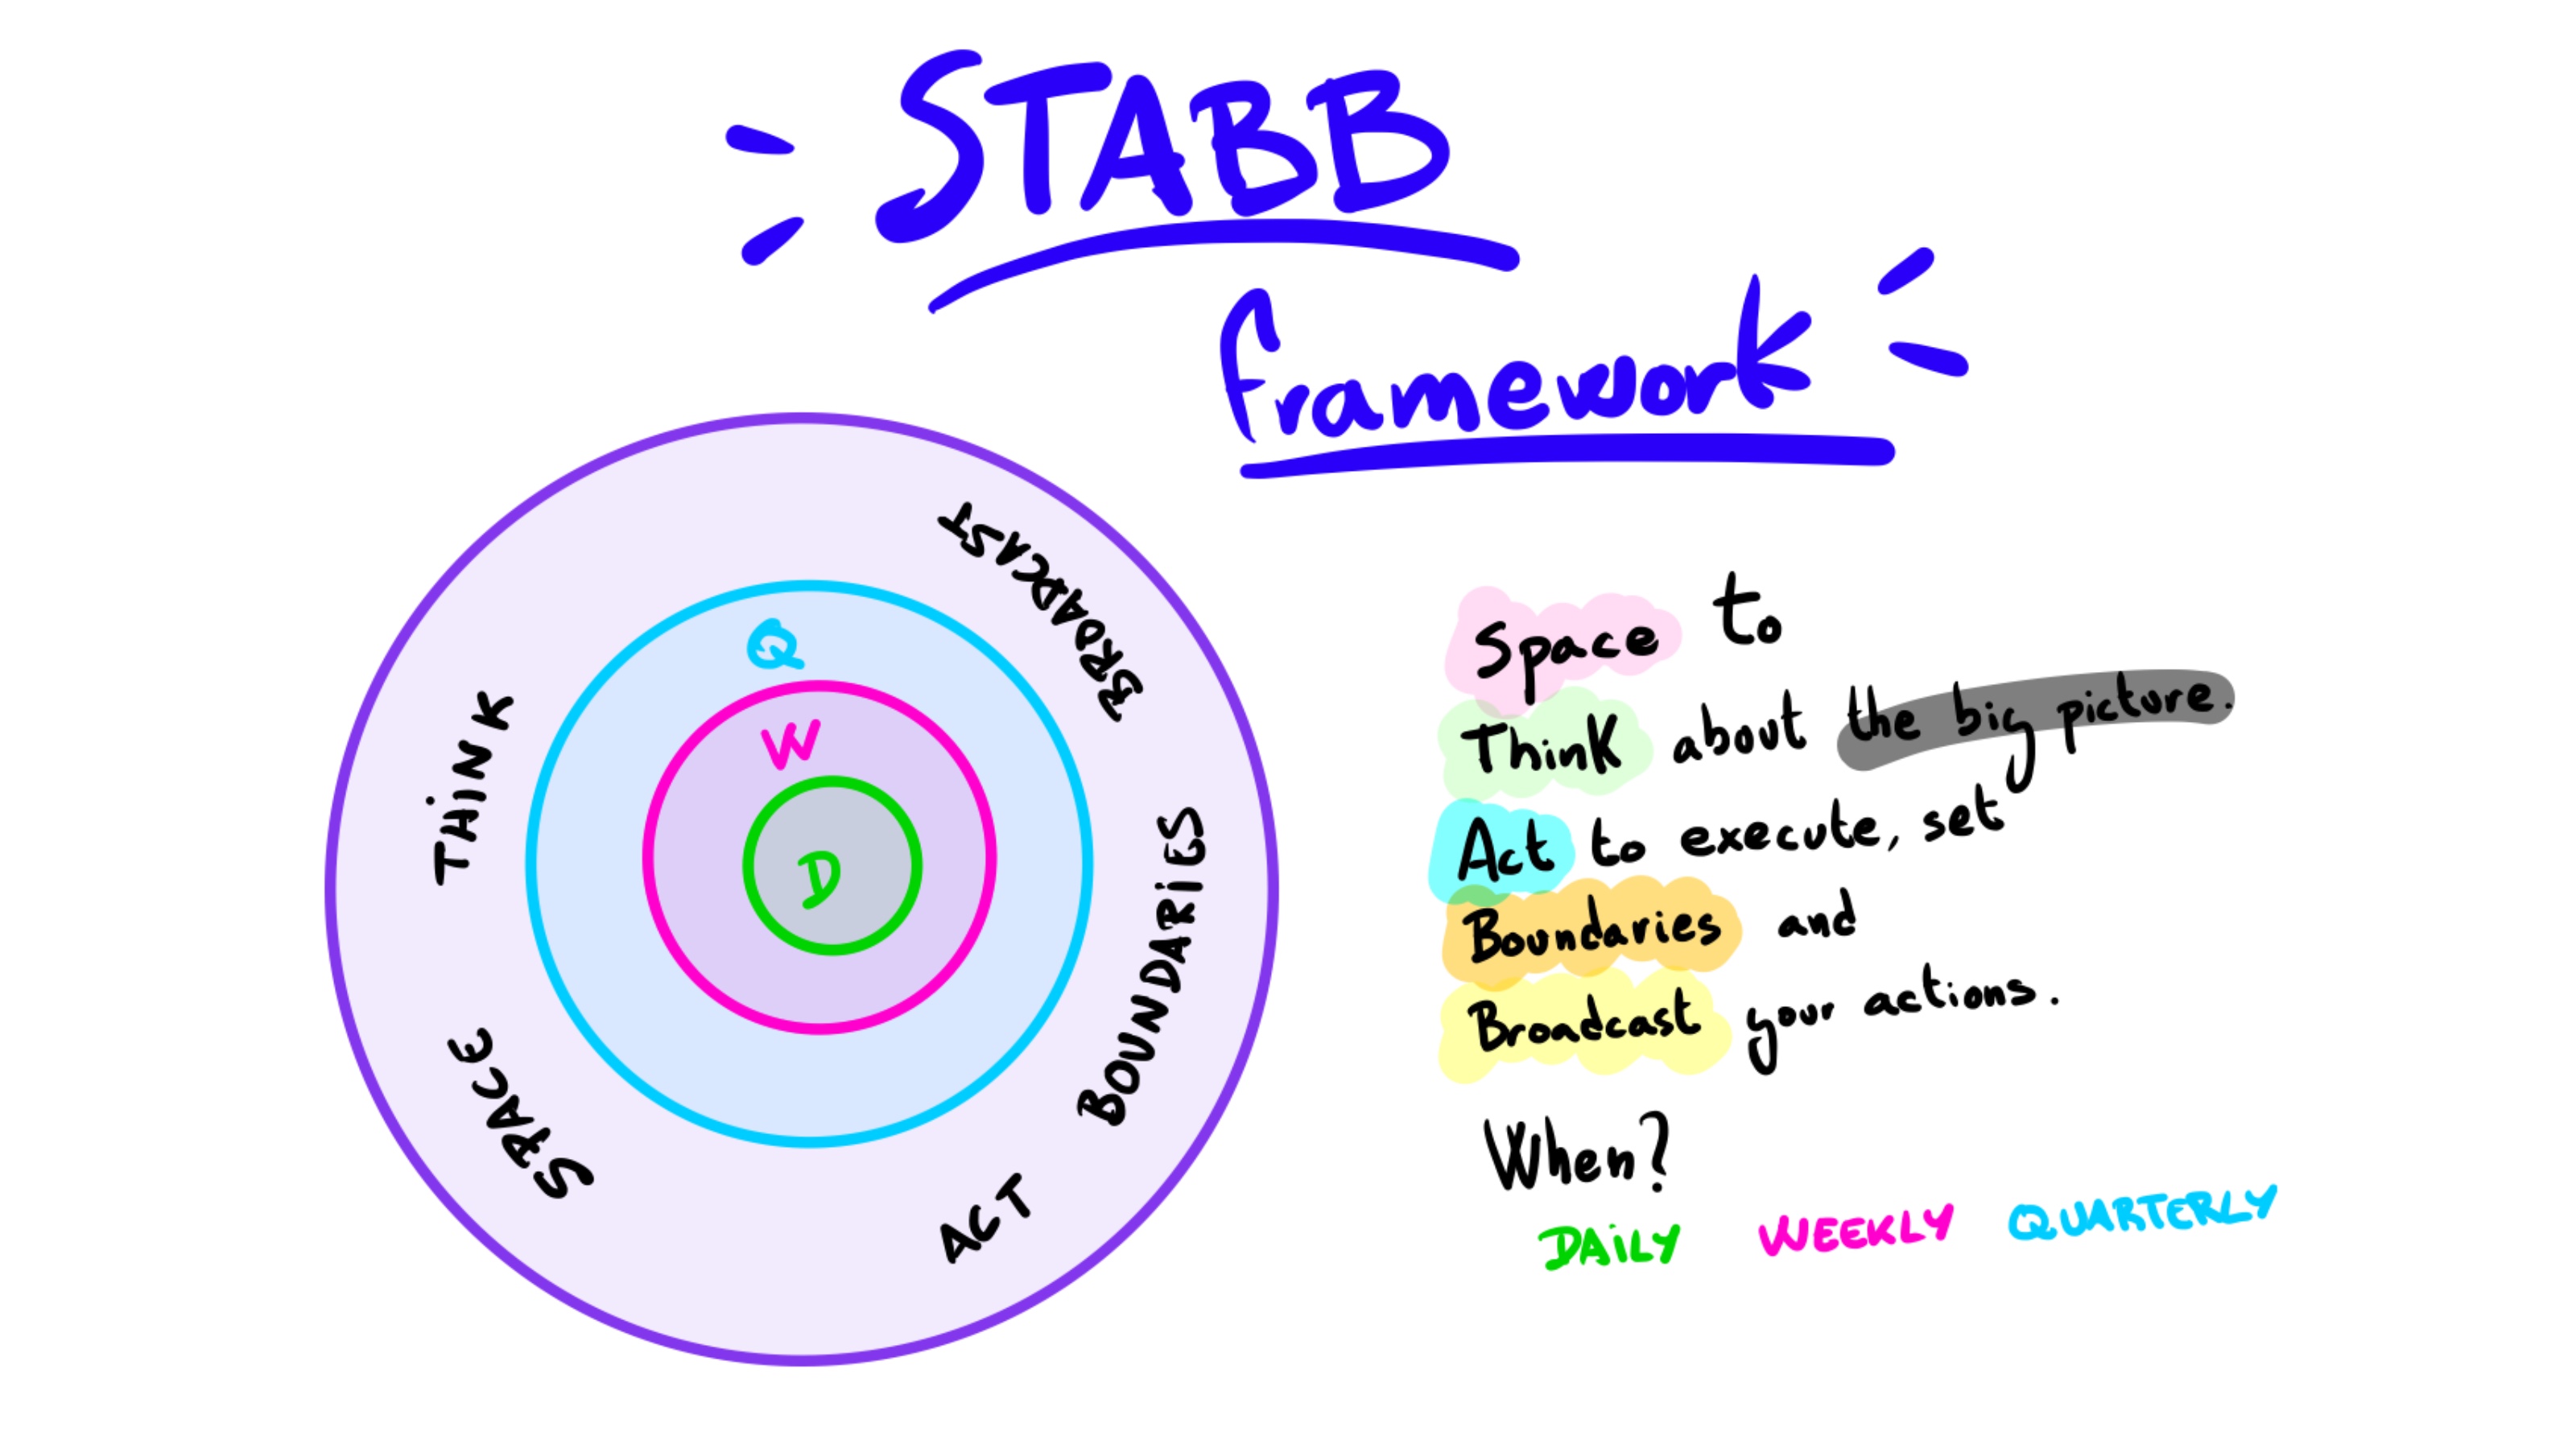 STABB
framework
BROADCAST
THiNK
Q
W
D
BOUNDARiES
SPACE
ACT
Space to
Think about the big picture.
Act to execute, set
Boundaries and
Broadcast your actions.
When?
DAiLY WEEKLY QUARTERLY